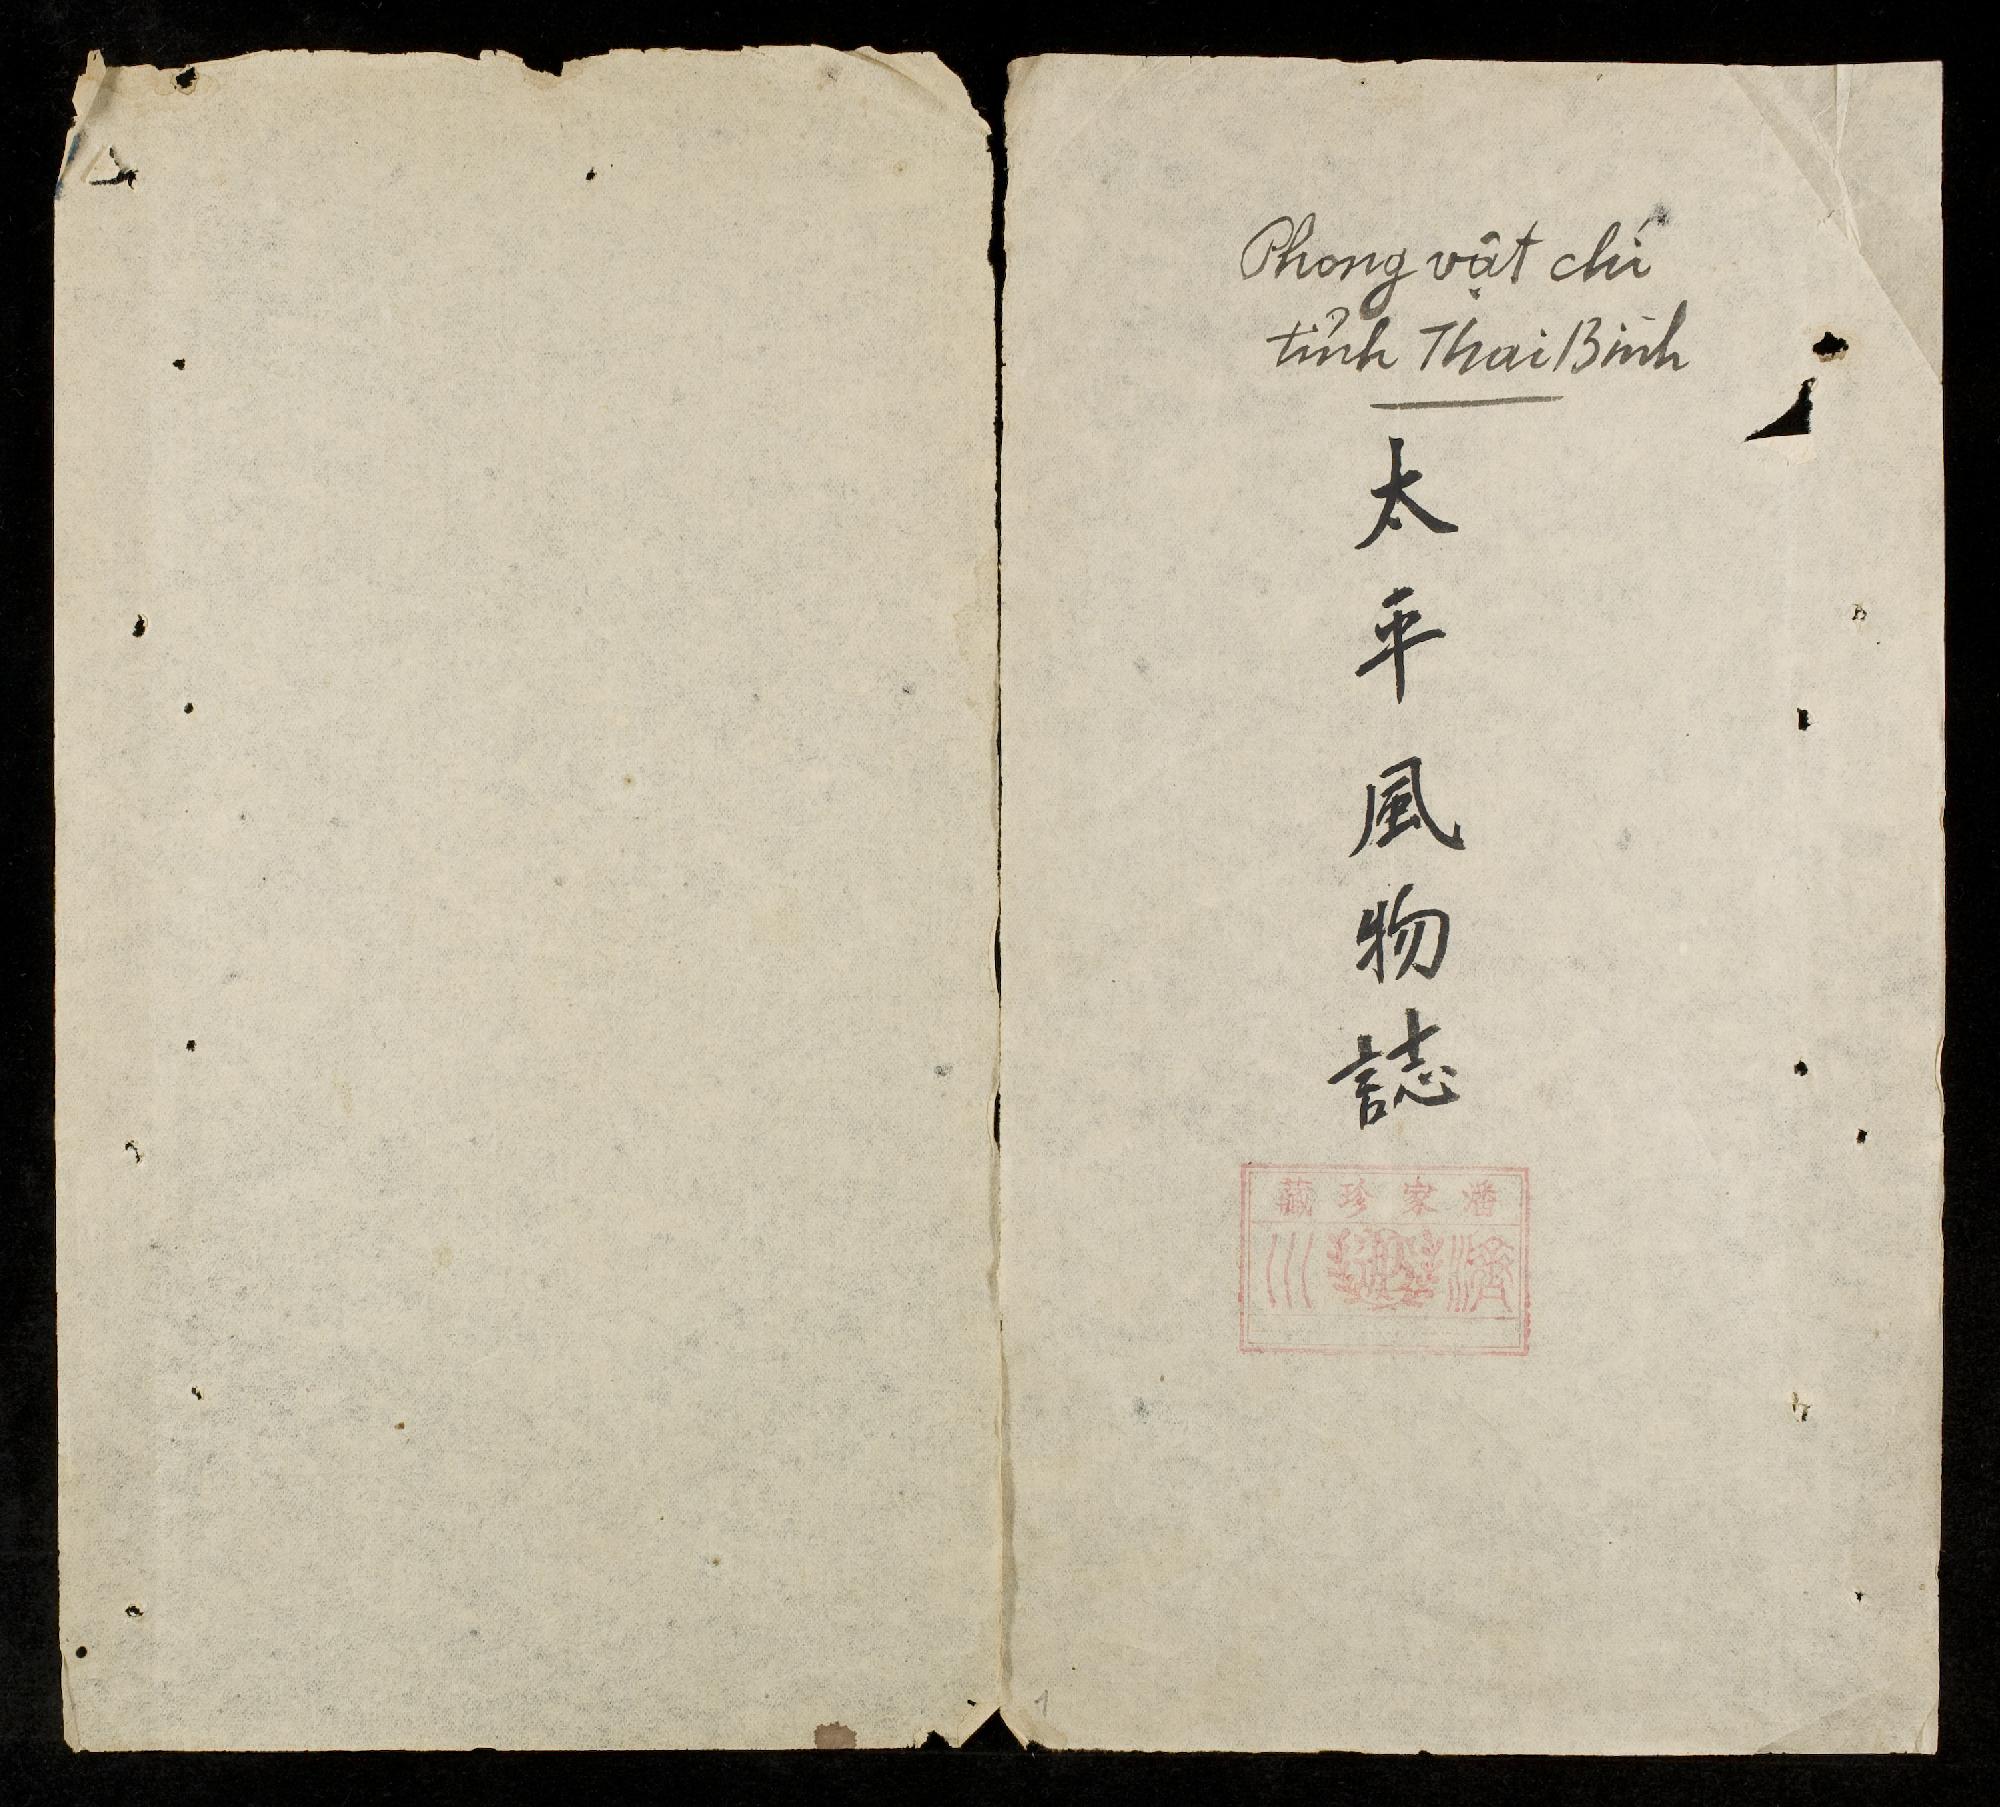 Phong vật chí
tỉnh Thai Bình
太平風物誌
潘家珍藏
濟川
1